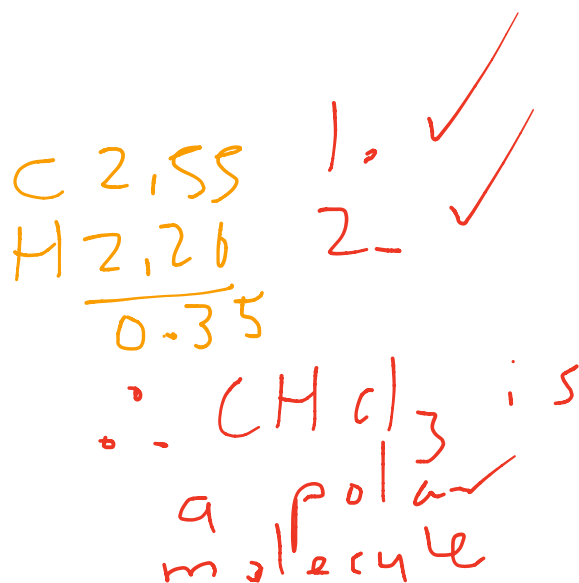 C 2.55
H 2.20
0.35
1. ✓
2. ✓
∴ CHCl₃ is
a polar
molecule